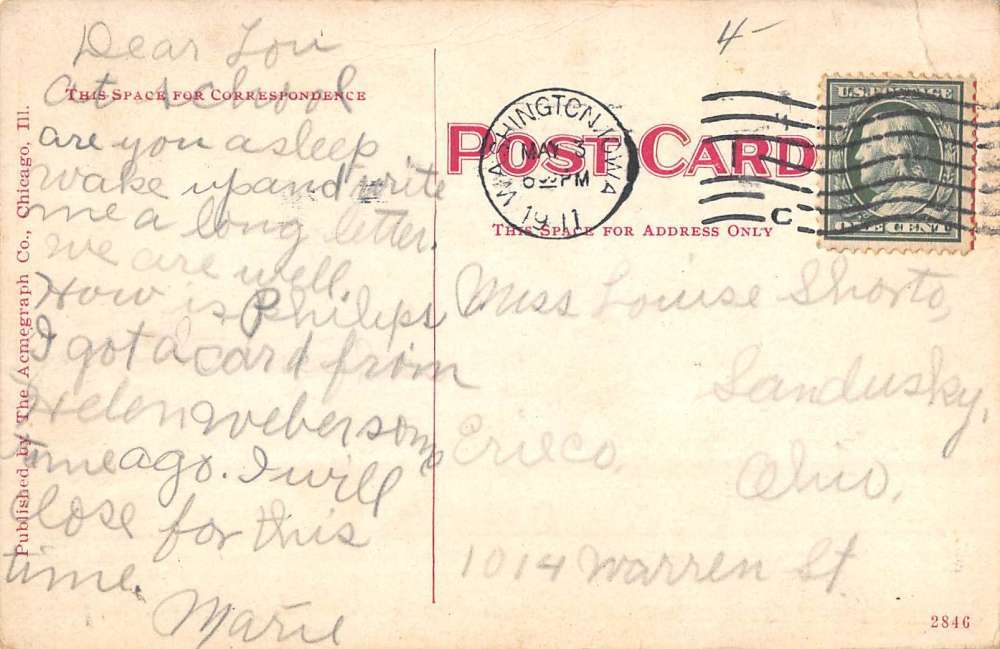 Dear Lou
THIS SPACE FOR CORRESPONDENCE
at school
are you asleep
wake up and write
me a long letter.
we are well.
How is Philips
I got a card from
Helen Weber some
time ago. I will
close for this
time.
Marie
Published by The Acmegraph Co., Chicago, Ill.
4-
WASHINGTON, IOWA
MAY 3
6 30 PM
1911
C
U.S. POSTAGE
ONE CENT
POST CARD
THIS SPACE FOR ADDRESS ONLY
Miss Louise Shorto,
Sandusky,
Erie Co.
Ohio.
1014 Warren St
2846